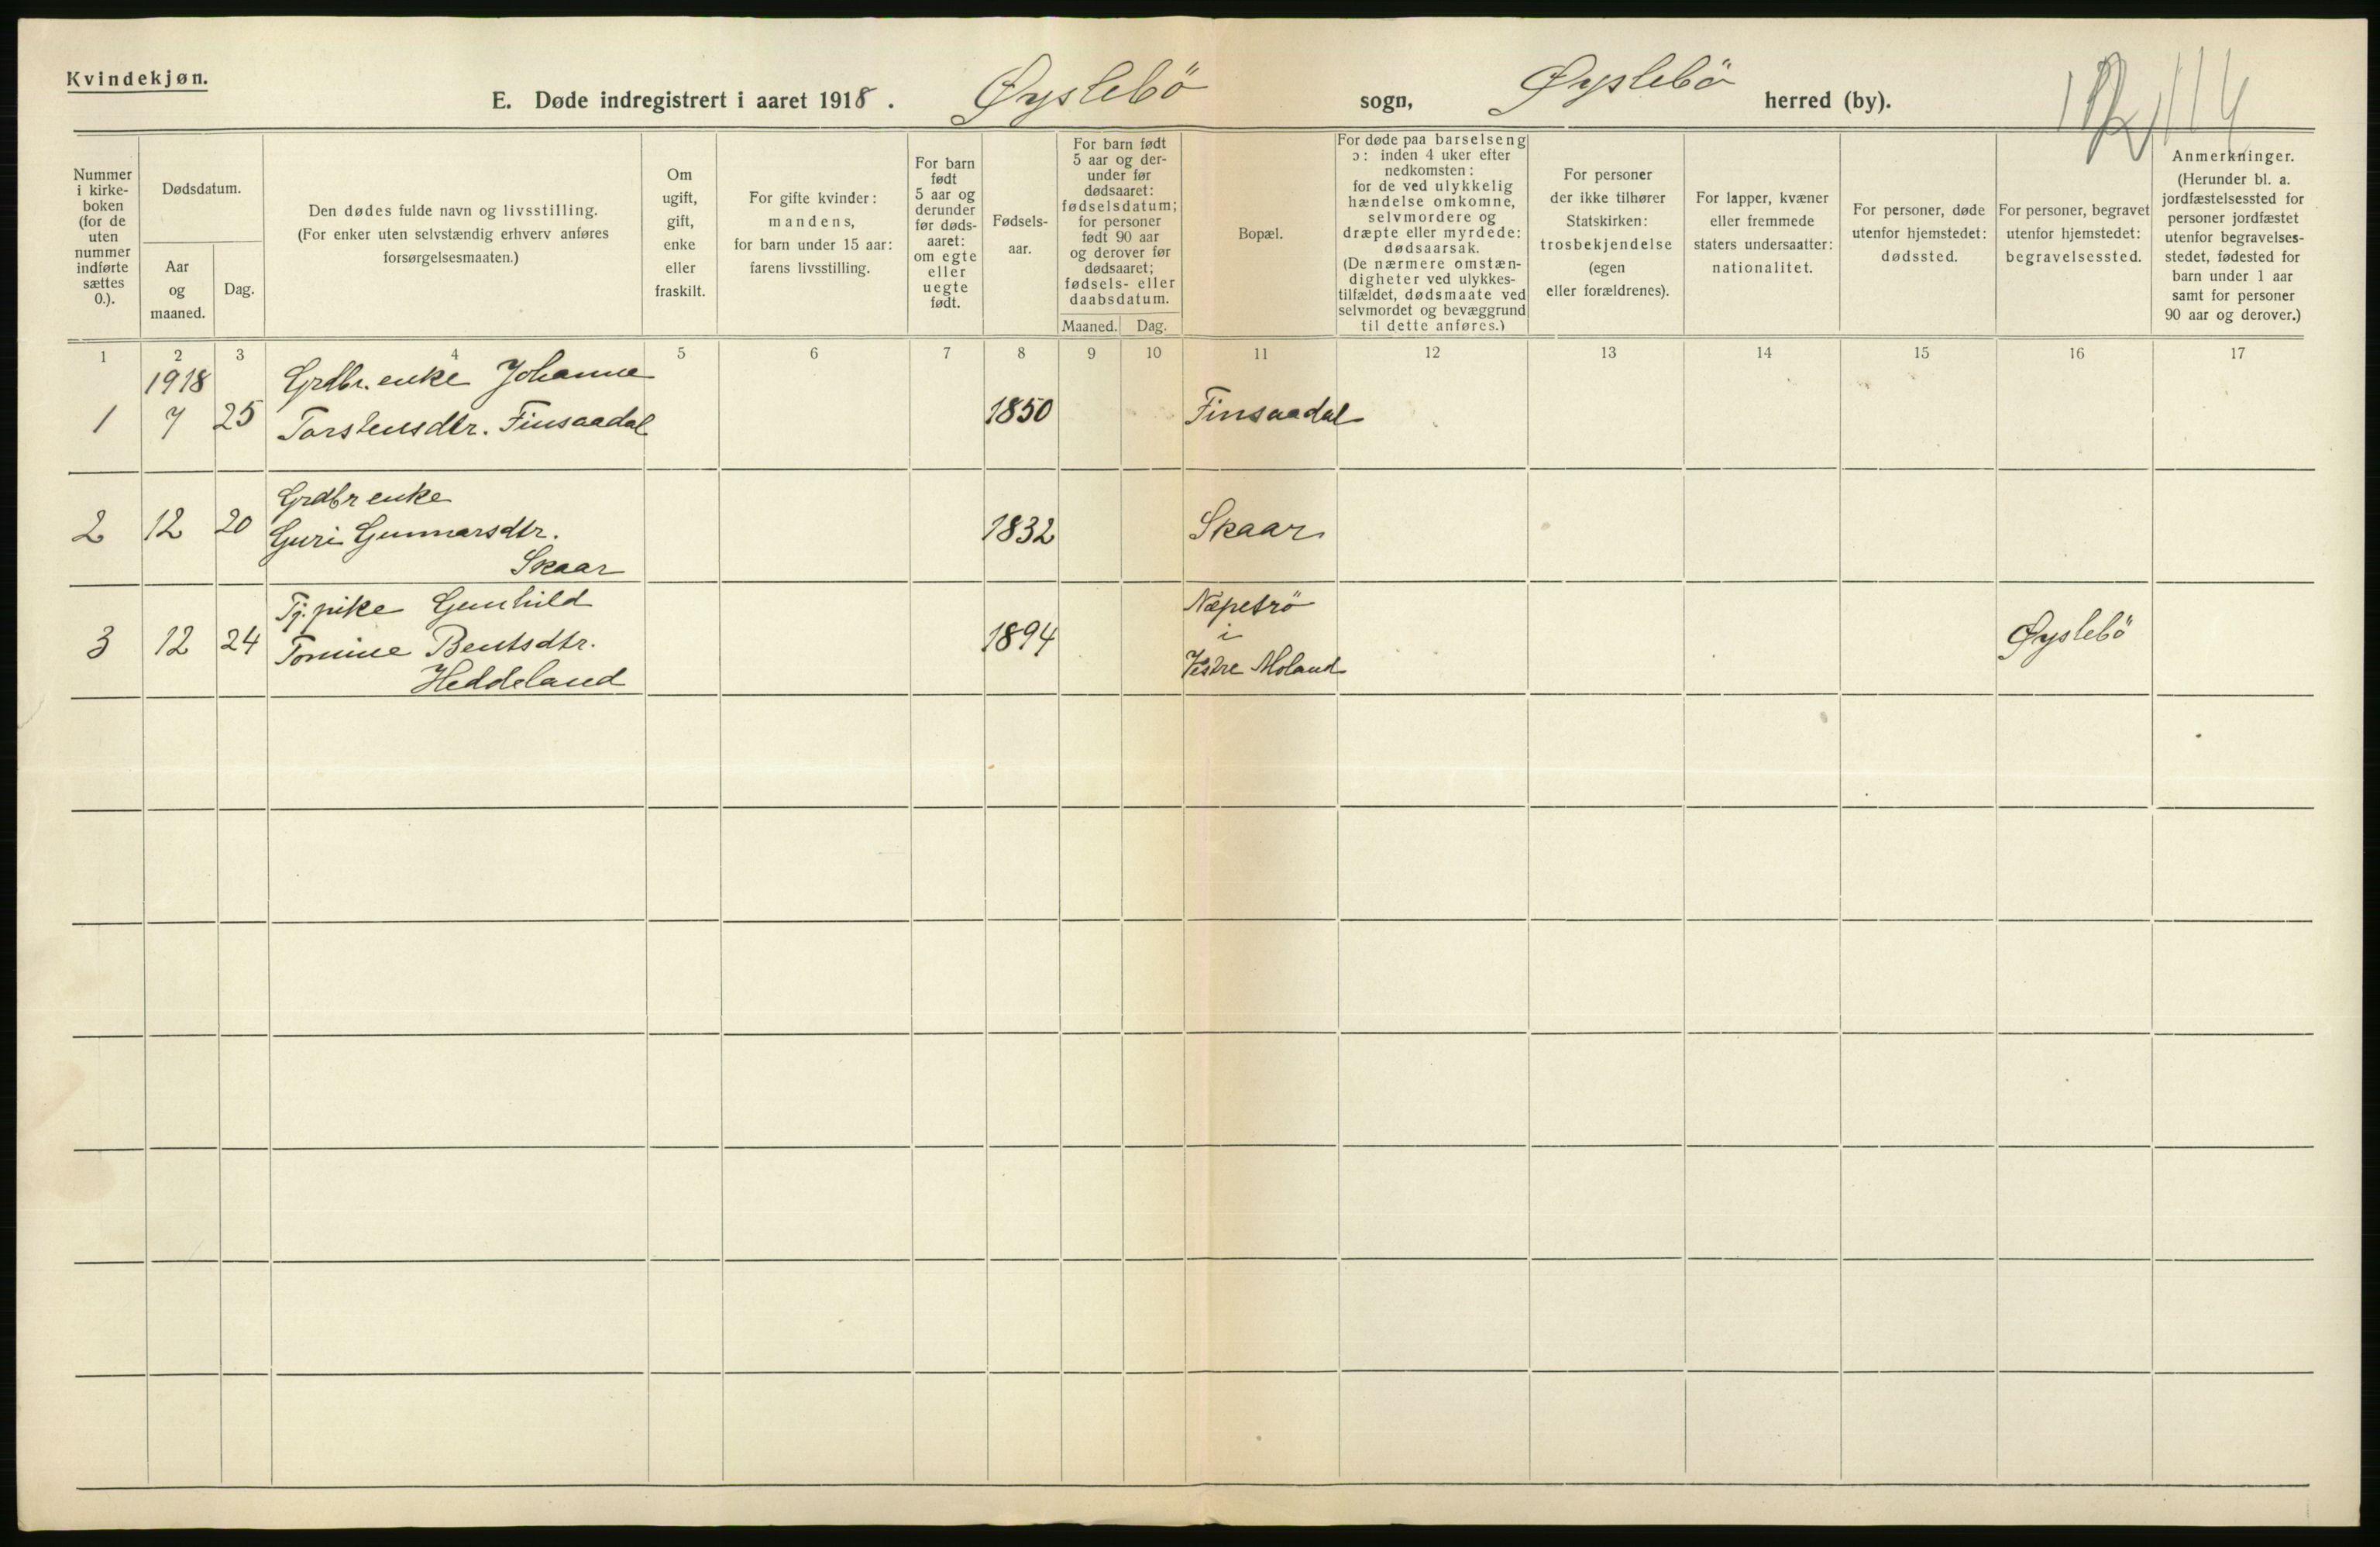 Kvindekjøn.
E. Døde indregistrert i aaret 1918. Øyslebö sogn, Øyslebö herred (by).
Nummer
i kirke-
boken
(for de
uten
nummer
indførte
sættes
0.).
Dødsdatum.
Aar
og
maaned.
Dag.
Den dødes fulde navn og livsstilling.
(For enker uten selvstændig erhverv anføres
forsørgelsesmaaten.)
Om
ugift,
gift,
enke
eller
fraskilt.
For gifte kvinder:
mandens,
for barn under 15 aar:
farens livsstilling.
For barn
født
5 aar og
derunder
før døds-
aaret:
om egte
eller
uegte
født.
Fødsels-
aar.
For barn født
5 aar og der-
under før
dødsaaret:
fødselsdatum;
for personer
født 90 aar
og derover før
dødsaaret;
fødsels- eller
daabsdatum.
Maaned. Dag.
Bopæl.
For døde paa barselseng
ɔ: inden 4 uker efter
nedkomsten:
for de ved ulykkelig
hændelse omkomne,
selvmordere og
dræpte eller myrdede:
dødsaarsak.
(De nærmere omstæn-
digheter ved ulykkes-
tilfældet, dødsmaate ved
selvmordet og bevæggrund
til dette anføres.)
For personer
der ikke tilhører
Statskirken:
trosbekjendelse
(egen
eller forældrenes).
For lapper, kvæner
eller fremmede
staters undersaatter:
nationalitet.
For personer, døde
utenfor hjemstedet:
dødssted.
For personer, begravet
utenfor hjemstedet:
begravelsessted.
Anmerkninger.
(Herunder bl. a.
jordfæstelsessted for
personer jordfæstet
utenfor begravelses-
stedet, fødested for
barn under 1 aar
samt for personer
90 aar og derover.)
1 2 3 4 5 6 7 8 9 10 11 12 13 14 15 16 17
1918 Grdbr. enke Johanne
1 7 25 Torstensdtr. Finsaadal 1850 Finsaadal
Grdbr enke
2 12 20 Guri Gunnarsdtr. 1832 Skaar
Skaar
Tj. pike Gunhild Næpetrö
3 12 24 Tomine Bentsdtr. 1894 i Øyslebö
Heddeland Vestre Moland